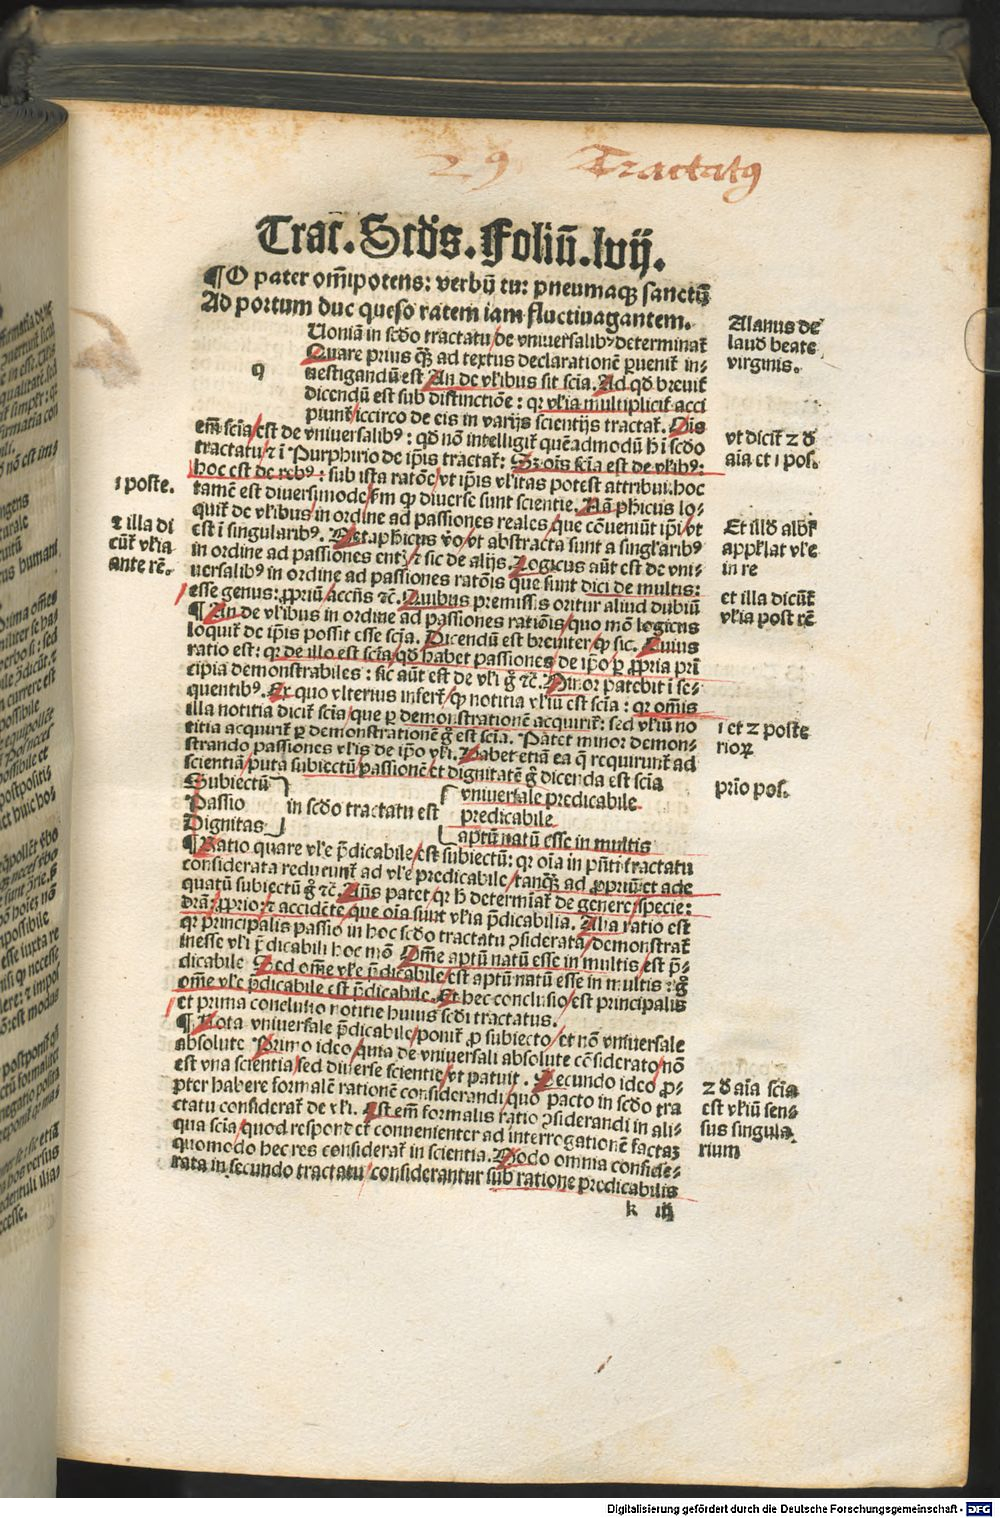 29 Tractatꝰ
Trac̄. Scd̄s. Foliū. lvij.
¶O pater om̄ipotens: verbū tu: pneumaqꝫ sanctū
Ad portum duc queso ratem iam fluctivagantem.
Alanus de
laud beate
virginis.
q
Uoniā in scd̄o tractatu/de vniversalibꝰ determinat̄
Quare prius qꝫ̄ ad textus declarationē ꝑuenit̄ in-
uestigandū est An de vl̄ibus sit scīa. Ad qd̄ breuit̄
dicendū est sub distinctiōe: qꝛ vl̄ia multiplicit̄ acci
piunt̄/iccirco de eis in varijs scientijs tractat̄. Oīs
em̄ scīa/est de vniuersalibꝰ: qd̄ nō intelligit̄ quēadmodū hī scd̄o
tractatu/⁊ ī Purphirio de ip̄is tractat̄: Sꝫ oīs scīa est de vl̄ibꝰ:
hoc est de rebꝰ: sub ista ratōe/vt ip̄is vl̄itas potest attribui. hoc
tamē est diversimode/s̄m ꝙ diuerse sunt scientie. Nā phicus lo-
quit̄ de vl̄ibus/in ordine ad passiones reales/que cōveniūt ip̄i/vt
est ī singularibꝰ. Metaphicus v̄o/vt abstracta sunt a singl̄aribꝰ
in ordine ad passiones entꝭ/⁊ sic de alijs. Logicus aūt est de vni-
uersalibꝰ in ordine ad passiones ratōis que sunt dici de multis:
esse genus: ꝓpriū/accn̄s ⁊c̄. Quibus premissis oritur aliud dubiū
¶ An de vl̄ibus in ordine ad passiones rationis/quo mō logicus
loquit̄ de ip̄is possit esse scīa. Dicendū est breuiter/ꝙ sic. Cuius
ratio est: qꝛ de illo est scīa/qd̄ habet passiones de ip̄o ꝑ ꝓpria prī
cipia demonstrabiles: sic aūt est de vl̄i g̊ ⁊c̄. Minor patebit ī se-
quentibꝰ. Ex quo vlterius infert̄/ꝙ notitia vl̄iū est scīa: qꝛ omīs
illa notitia dicit̄ scīa/que ꝑ demonstrationē acquirit̄: sed vl̄iū no
titia acquirit̄ ꝑ demonstrationē g̊ est scīa. Patet minor demon-
strando passiones vl̄is de ip̄o vl̄i. Habet etiā ea q̄ requirunt̄ ad
scientiā/puta subiectū passionē et dignitatē g̊ dicenda est scīa
Subiectū
Passio
Dignitas
in scd̄o tractatu est
vniuersale predicabile
predicabile
aptū natū esse in multis
¶ Ratio quare vl̄e p̄dicabile/est subiectū: qꝛ oīa in pn̄ti tractatu
considerata reducunt̄ ad vl̄e predicabile/tanqꝫ̄ ad ꝓpriū et ade
quatū subiectū g̊ ⁊c̄. Añs patet/qꝛ h̄ determīat̄ de genere/specie:
dr̄ā: ꝓprio: ⁊ accidēte/que oīa sunt vl̄ia p̄dicabilia. Alia ratio est
qꝛ principalis passio in hoc scd̄o tractatu ꝯsiderata/demonstrat̄
inesse vl̄i p̄dicabili hoc mō Om̄e aptū natū esse in multis/est p̄-
dicabile Sed om̄e vl̄e p̄dicabile/est aptū natū esse in multis: g̊
om̄e vl̄e p̄dicabile est p̄dicabile. Et hec conclusio/est principalis
et prima conclusio notitie huius scd̄i tractatus.
¶ Nota vniuersale p̄dicabile/ponit̄ ꝓ subiecto/et nō vniuersale
absolute Primo ideo/quia de vniuersali absolute cōsiderato/nō
est vna scientia/sed diuerse scientie/vt patuit. Secundo ideo ꝓ-
pter habere formalē rationē considerandi/quo pacto in scd̄o tra
ctatu considerat̄ de vl̄i. Est em̄ formalis ratio ꝯsiderandi in ali-
qua scīa/quod respondet̄ conuenienter ad interrogationē factaꝫ
quomodo hec res considerat̄ in scientia. Modo omnia conside-
rata in secundo tractatu/considerantur sub ratione predicabilis
k iij
1 poste.
⁊ illa di
cūt̄ vl̄ia
ante rē.
vt dicit̄ 2 d̄
aīa et 1 pos.
Et illd̄ alb̄t̄
appl̄lat vl̄e
in re
et illa dicūt̄
vl̄ia post rē
1 et 2 poste
rioꝝ
prīo pos.
2 d̄ aīa scīa
est vl̄iū sen-
sus singula-
rium
Digitalisierung gefördert durch die Deutsche Forschungsgemeinschaft - DFG